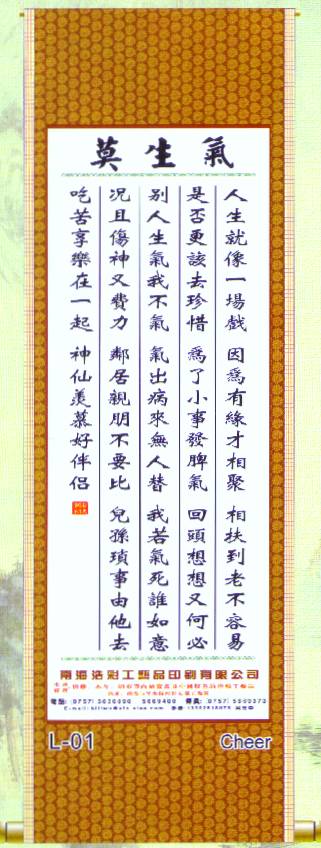 莫生氣
人生就像一場戲 因爲有緣才相聚 相扶到老不容易
是否更該去珍惜 爲了小事發脾氣 回頭想想又何必
別人生氣我不氣 氣出病來無人替 我若氣死誰如意
況且傷神又費力 鄰居親朋不要比 兒孫瑣事由他去
吃苦享樂在一起 神仙羨慕好伴侶
南海浩彩工藝品印刷有限公司
L-01
Cheer